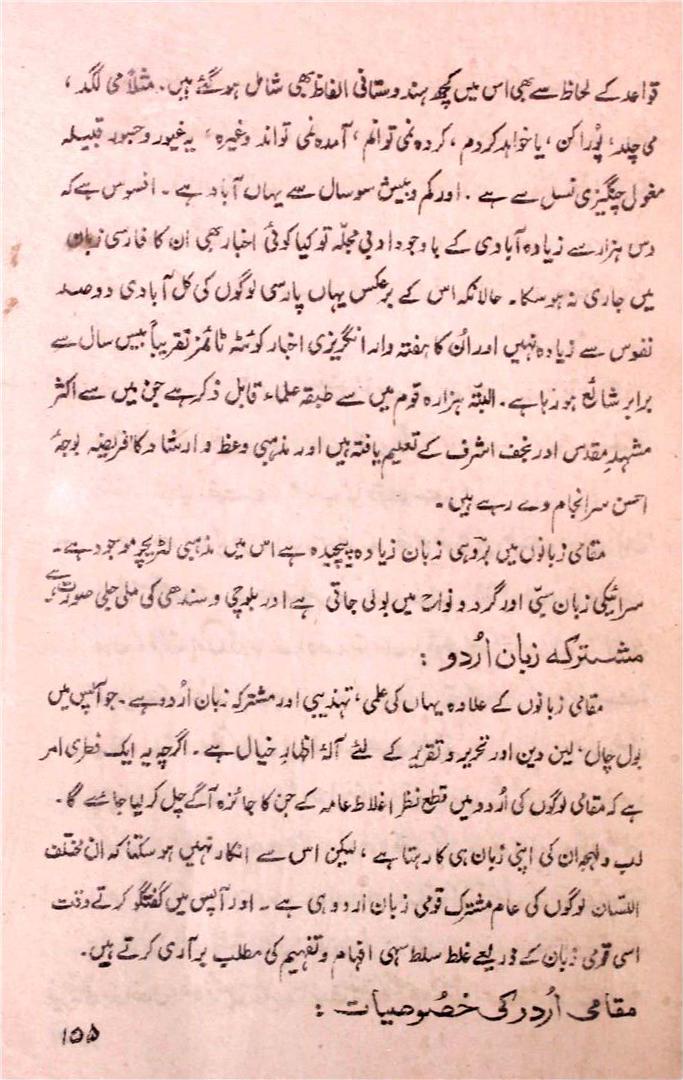 قواعد کے لحاظ سے بھی اس میں کچھ ہندوستانی الفاظ بھی شامل ہو گئے ہیں۔ مثلاً می لگد،
می چلد، پُورا کن، یا خواہد کردم، کردہ نمی توانم، آمدہ نمی تواند وغیرہ، یہ غیور و جسور قبیلہ
مغول چنگیزی نسل سے ہے۔ اور کم و بیش سو سال سے یہاں آباد ہے۔ افسوس ہے کہ
دس ہزار سے زیادہ آبادی کے باوجود ادبی مجلّہ تو کیا کوئی اخبار بھی ان کا فارسی زبان
میں جاری نہ ہو سکا۔ حالانکہ اس کے برعکس یہاں پارسی لوگوں کی کل آبادی دو صد
نفوس سے زیادہ نہیں اور اُن کا ہفتہ وار انگریزی اخبار کوئٹہ ٹائمز تقریباً بیس سال سے
برابر شائع ہو رہا ہے۔ البتّہ ہزارہ قوم میں سے طبقہ علماء قابل ذکر ہے جن میں سے اکثر
مشہدِ مقدس اور نجف اشرف کے تعلیم یافتہ ہیں اور مذہبی وعظ و ارشاد کا فریضہ بوجہٗ
احسن سرانجام دے رہے ہیں۔
مقامی زبانوں میں بروہی زبان زیادہ پیچیدہ ہے اس میں مذہبی لٹریچر موجود ہے۔
سرائیکی زبان سبّی اور گرد و نواح میں بولی جاتی ہے اور بلوچی و سندھی کی ملی جلی صورت ہے۔
مشترکہ زبان اُردو :
مقامی زبانوں کے علاوہ یہاں کی علمی، تہذیبی اور مشترکہ زبان اُردو ہے۔ جو آپس میں
بول چال، لین دین اور تحریر و تقریر کے لئے آلۂ اظہارِ خیال ہے۔ اگرچہ یہ ایک فطری امر
ہے کہ مقامی لوگوں کی اُردو میں قطع نظر اغلاط عامہ کے جن کا جائزہ آگے چل کر لیا جائے گا۔
لب و لہجہ ان کی اپنی زبان ہی کا رہتا ہے، لیکن اس سے انکار نہیں ہو سکتا کہ ان مختلف
اللسان لوگوں کی عام مشترک قومی زبان اردو ہی ہے۔ اور آپس میں گفتگو کرتے وقت
اسی قومی زبان کے ذریعے غلط سلط سہی افہام و تفہیم کی مطلب برآری کرتے ہیں۔
مقامی اُردو کی خصُوصیات :
۱۵۵